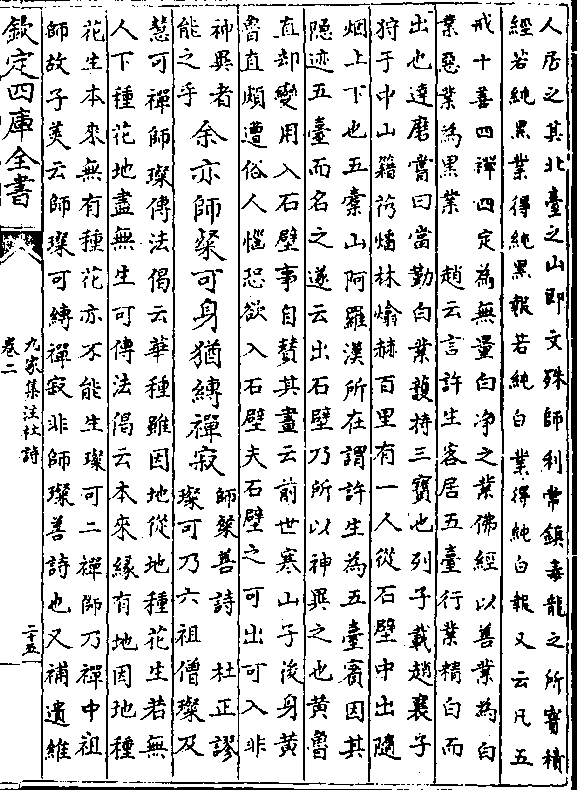 人居之其北臺之山即文殊師利常鎮毒龍之所寳積
經若純黒業得純黒報若純白業得純白報又云凡五
戒十善四禪四定為無量白净之業佛經以善業為白
業惡業為黒業　趙云言許生客居五臺行業精白而
出也達磨嘗曰當勤白業護持三寳也列子載趙襄子
狩于中山籍芿燔林熻赫百里有一人從石壁中出隨
烟上下也五臺山阿羅漢所在謂許生為五臺賔因其
隠迹五臺而名之遂云出石壁乃所以神異之也黄魯
直却變用入石壁事自賛其畫云前世寒山子後身黄
魯直頗遭俗人惱恐欲入石壁夫石壁之可出可入非
神異者
能之乎
余亦師粲可身猶縛禪寂
師粲善詩　杜正謬
璨可乃六祖僧璨及
慧可禪師璨傳法偈云華種雖因地從地種花生若無
人下種花地盡無生可傳法偈云本來緣有地因地種
花生本來無有種花亦不能生璨可二禪師乃禪中祖
師故子美云師璨可縛禪寂非師璨善詩也又補遺維
欽定四庫全書
九家集注杜詩
卷二
二十五